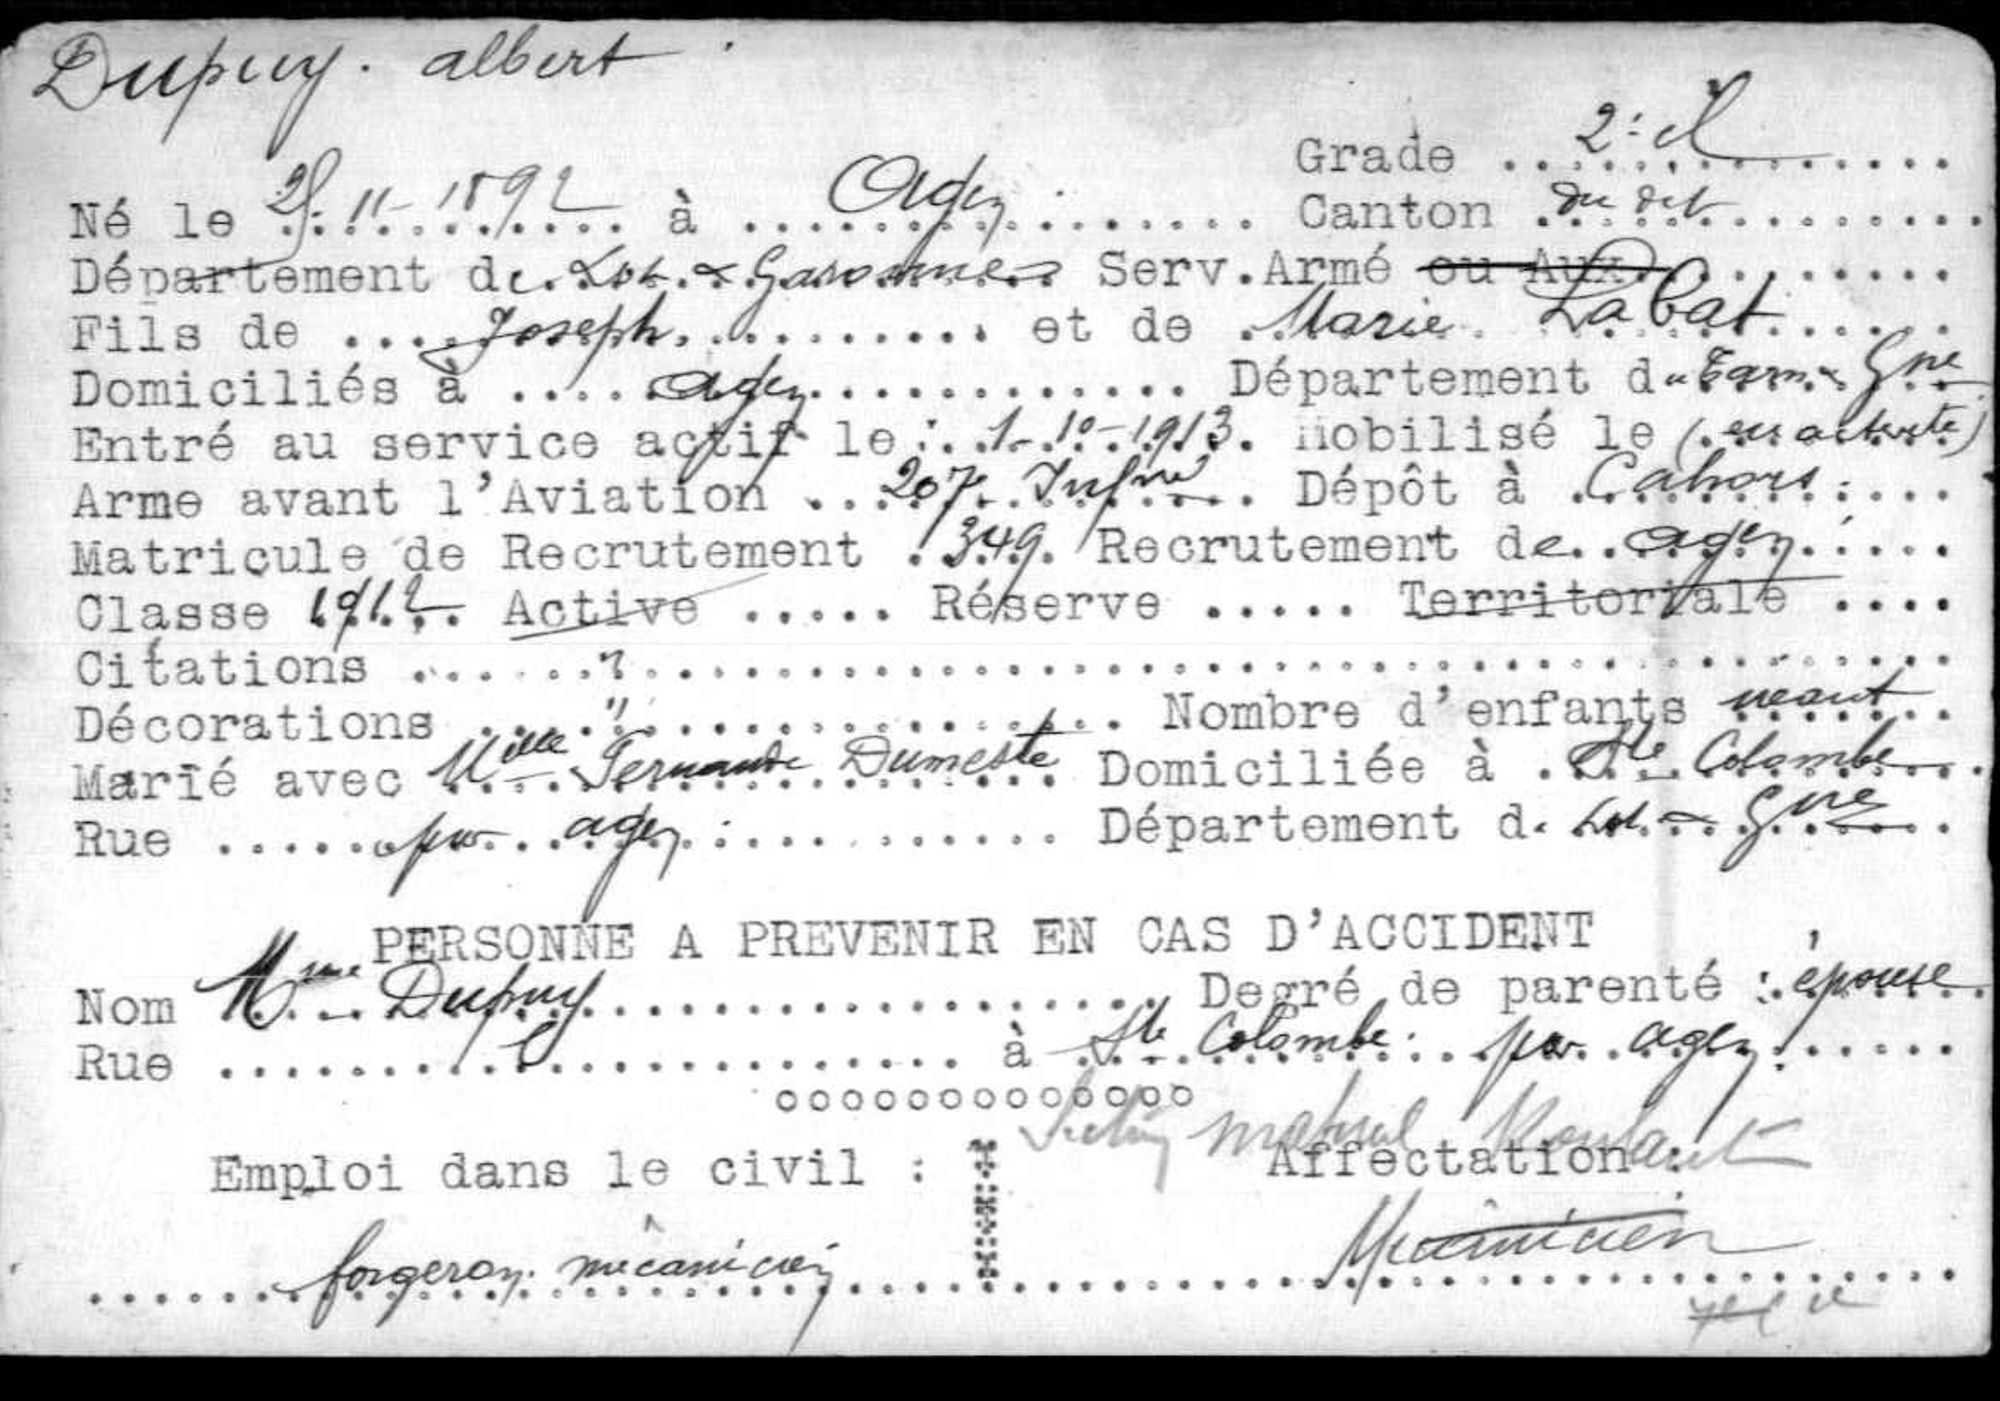 Dupuy. albert
Grade 2e cl
Né le 25-11-1892 à Agen Canton du dit
Département de Lot & Garonne Serv.Armé ou Aux.
Fils de Joseph. et de Marie Labat
Domiciliés à agen Département du Tarn & Gne
Entré au service actif le : 1-10-1913. Mobilisé le (en activité)
Arme avant l'Aviation 207 Infrie Dépôt à Cahors
Matricule de Recrutement 349. Recrutement de agen
Classe 1912 Active ..... Réserve ..... Territoriale ....
Citations ?
Décorations " Nombre d'enfants néant
Marié avec Melle Fernande Dumeste Domiciliée à Ste Colombe
Rue par agen Département d. Lot & Gne
PERSONNE A PREVENIR EN CAS D'ACCIDENT
Nom Mme Dupuy Degré de parenté : épouse
Rue ..... à Ste Colombe par agen
ooooooooooooo
Section matériel Roulant
Emploi dans le civil : Affectation :
forgeron mécanicien Mécanicien